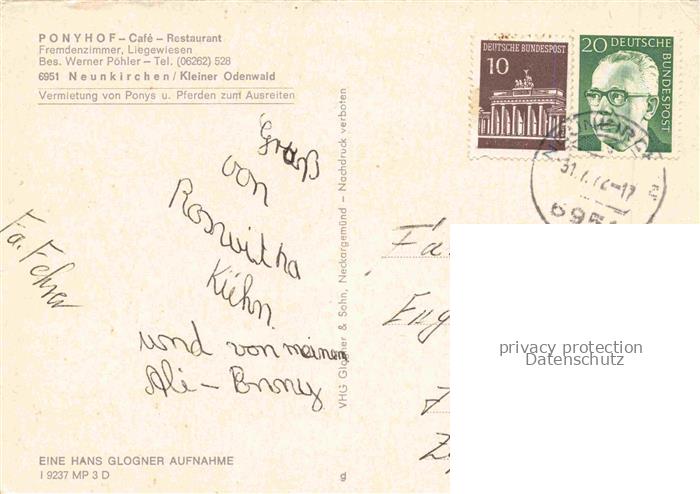 PONYHOF – Café – Restaurant
Fremdenzimmer, Liegewiesen
Bes. Werner Pöhler – Tel. (06262) 528
6951 Neunkirchen/Kleiner Odenwald
Vermietung von Ponys u. Pferden zum Ausreiten
DEUTSCHE BUNDESPOST
10
20 DEUTSCHE
BUNDESPOST
31.7.72-17
695
Gruß
von
Roswitha
Kiehn
und von meinen
Ali-Bonny
Fa. Fehrer
VHG Glogner & Sohn, Neckargemünd – Nachdruck verboten
Fa
Eng
privacy protection
Datenschutz
EINE HANS GLOGNER AUFNAHME
I 9237 MP 3 D
g